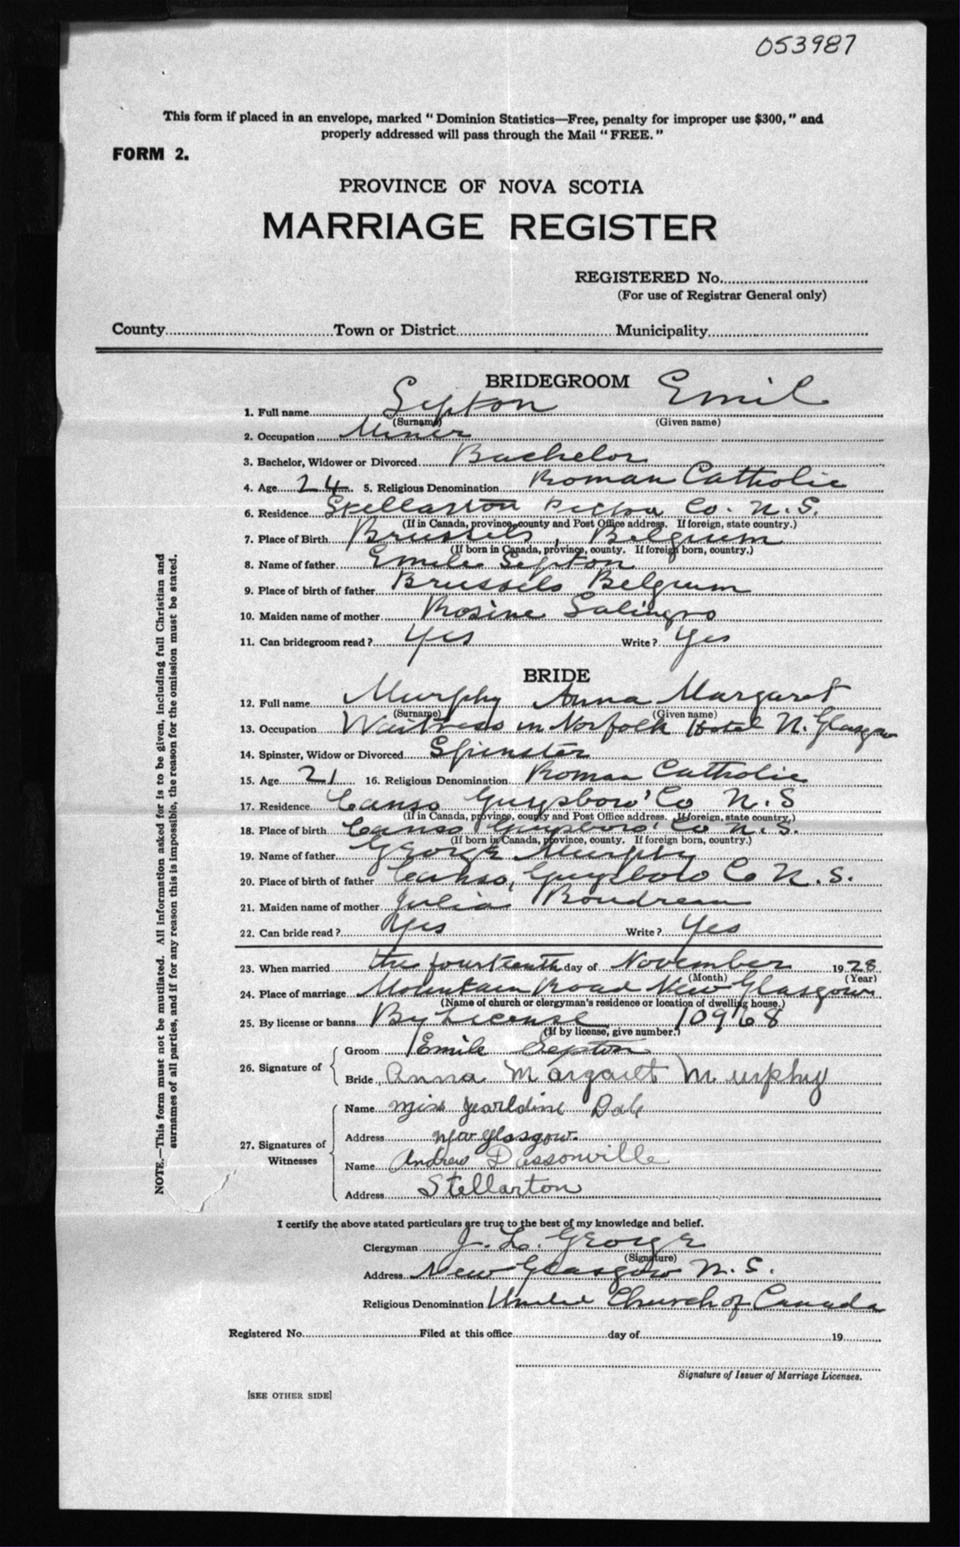 053987
This form if placed in an envelope, marked "Dominion Statistics—Free, penalty for improper use $300," and
properly addressed will pass through the Mail "FREE."
FORM 2.
PROVINCE OF NOVA SCOTIA
MARRIAGE REGISTER
REGISTERED No.
(For use of Registrar General only)
County Town or District Municipality
BRIDEGROOM
1. Full name Septon Emil
(Surname) (Given name)
2. Occupation Miner
3. Bachelor, Widower or Divorced Bachelor
4. Age 24 5. Religious Denomination Roman Catholic
6. Residence Stellarton Pictou Co. N.S.
(If in Canada, province, county and Post Office address. If foreign, state country.)
7. Place of Birth Brussels, Belgium
(If born in Canada, province, county. If foreign born, country.)
8. Name of father Emile Septon
9. Place of birth of father Brussels Belgium
10. Maiden name of mother Rosine Salingro
11. Can bridegroom read? Yes Write? Yes
BRIDE
12. Full name Murphy Anna Margaret
(Surname) (Given name)
13. Occupation Waitress in Norfolk Hotel N. Glasgow
14. Spinster, Widow or Divorced Spinster
15. Age 21 16. Religious Denomination Roman Catholic
17. Residence Canso Guysboro' Co N.S
(If in Canada, province, county and Post Office address. If foreign, state country.)
18. Place of birth Canso Guysboro' Co N.S.
(If born in Canada, province, county. If foreign born, country.)
19. Name of father George Murphy
20. Place of birth of father Canso, Guysboro Co N.S.
21. Maiden name of mother Julia Boudreau
22. Can bride read? Yes Write? Yes
23. When married the fourteenth day of November 1928
(Month) (Year)
24. Place of marriage Mountain Road New Glasgow
(Name of church or clergyman's residence or location of dwelling house.)
25. By license or banns By License 10968
(If by license, give number.)
26. Signature of
Groom Emile Septon
Bride Anna Margaret Murphy
27. Signatures of
Witnesses
Name Miss Jearldine Dale
Address New Glasgow.
Name Andrew Dassonville
Address Stellarton
I certify the above stated particulars are true to the best of my knowledge and belief.
Clergyman J. L. George
(Signature)
Address New Glasgow N.S.
Religious Denomination United Church of Canada
Registered No. Filed at this office day of 19
Signature of Issuer of Marriage Licenses.
[SEE OTHER SIDE]
NOTE.—This form must not be mutilated. All information asked for is to be given, including full Christian and
surnames of all parties, and if for any reason this is impossible, the reason for the omission must be stated.